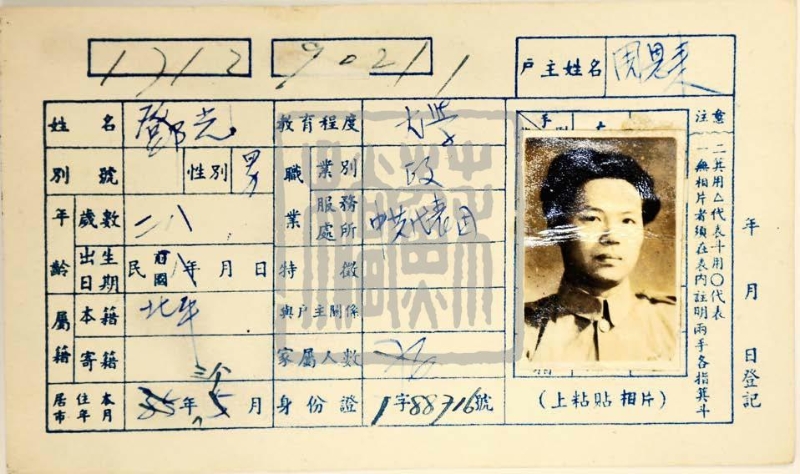 1712 90211
戶主姓名 周恩来
姓名 鄧光 教育程度 大学
別號 性別 男 職業別 政
年齡 歲數 二八 職業 服務處所 中共代表团
出生日期 民國前 年 月 日 特徵
屬籍 本籍 北平 與戶主關係
寄籍 家屬人數
居住本市年月 年 三个 5 月 身份證 1字88716號
手
(上粘貼相片)
注意
一無相片者須在表內註明兩手各指箕斗
二箕用△代表十用○代表
年 月 日登記